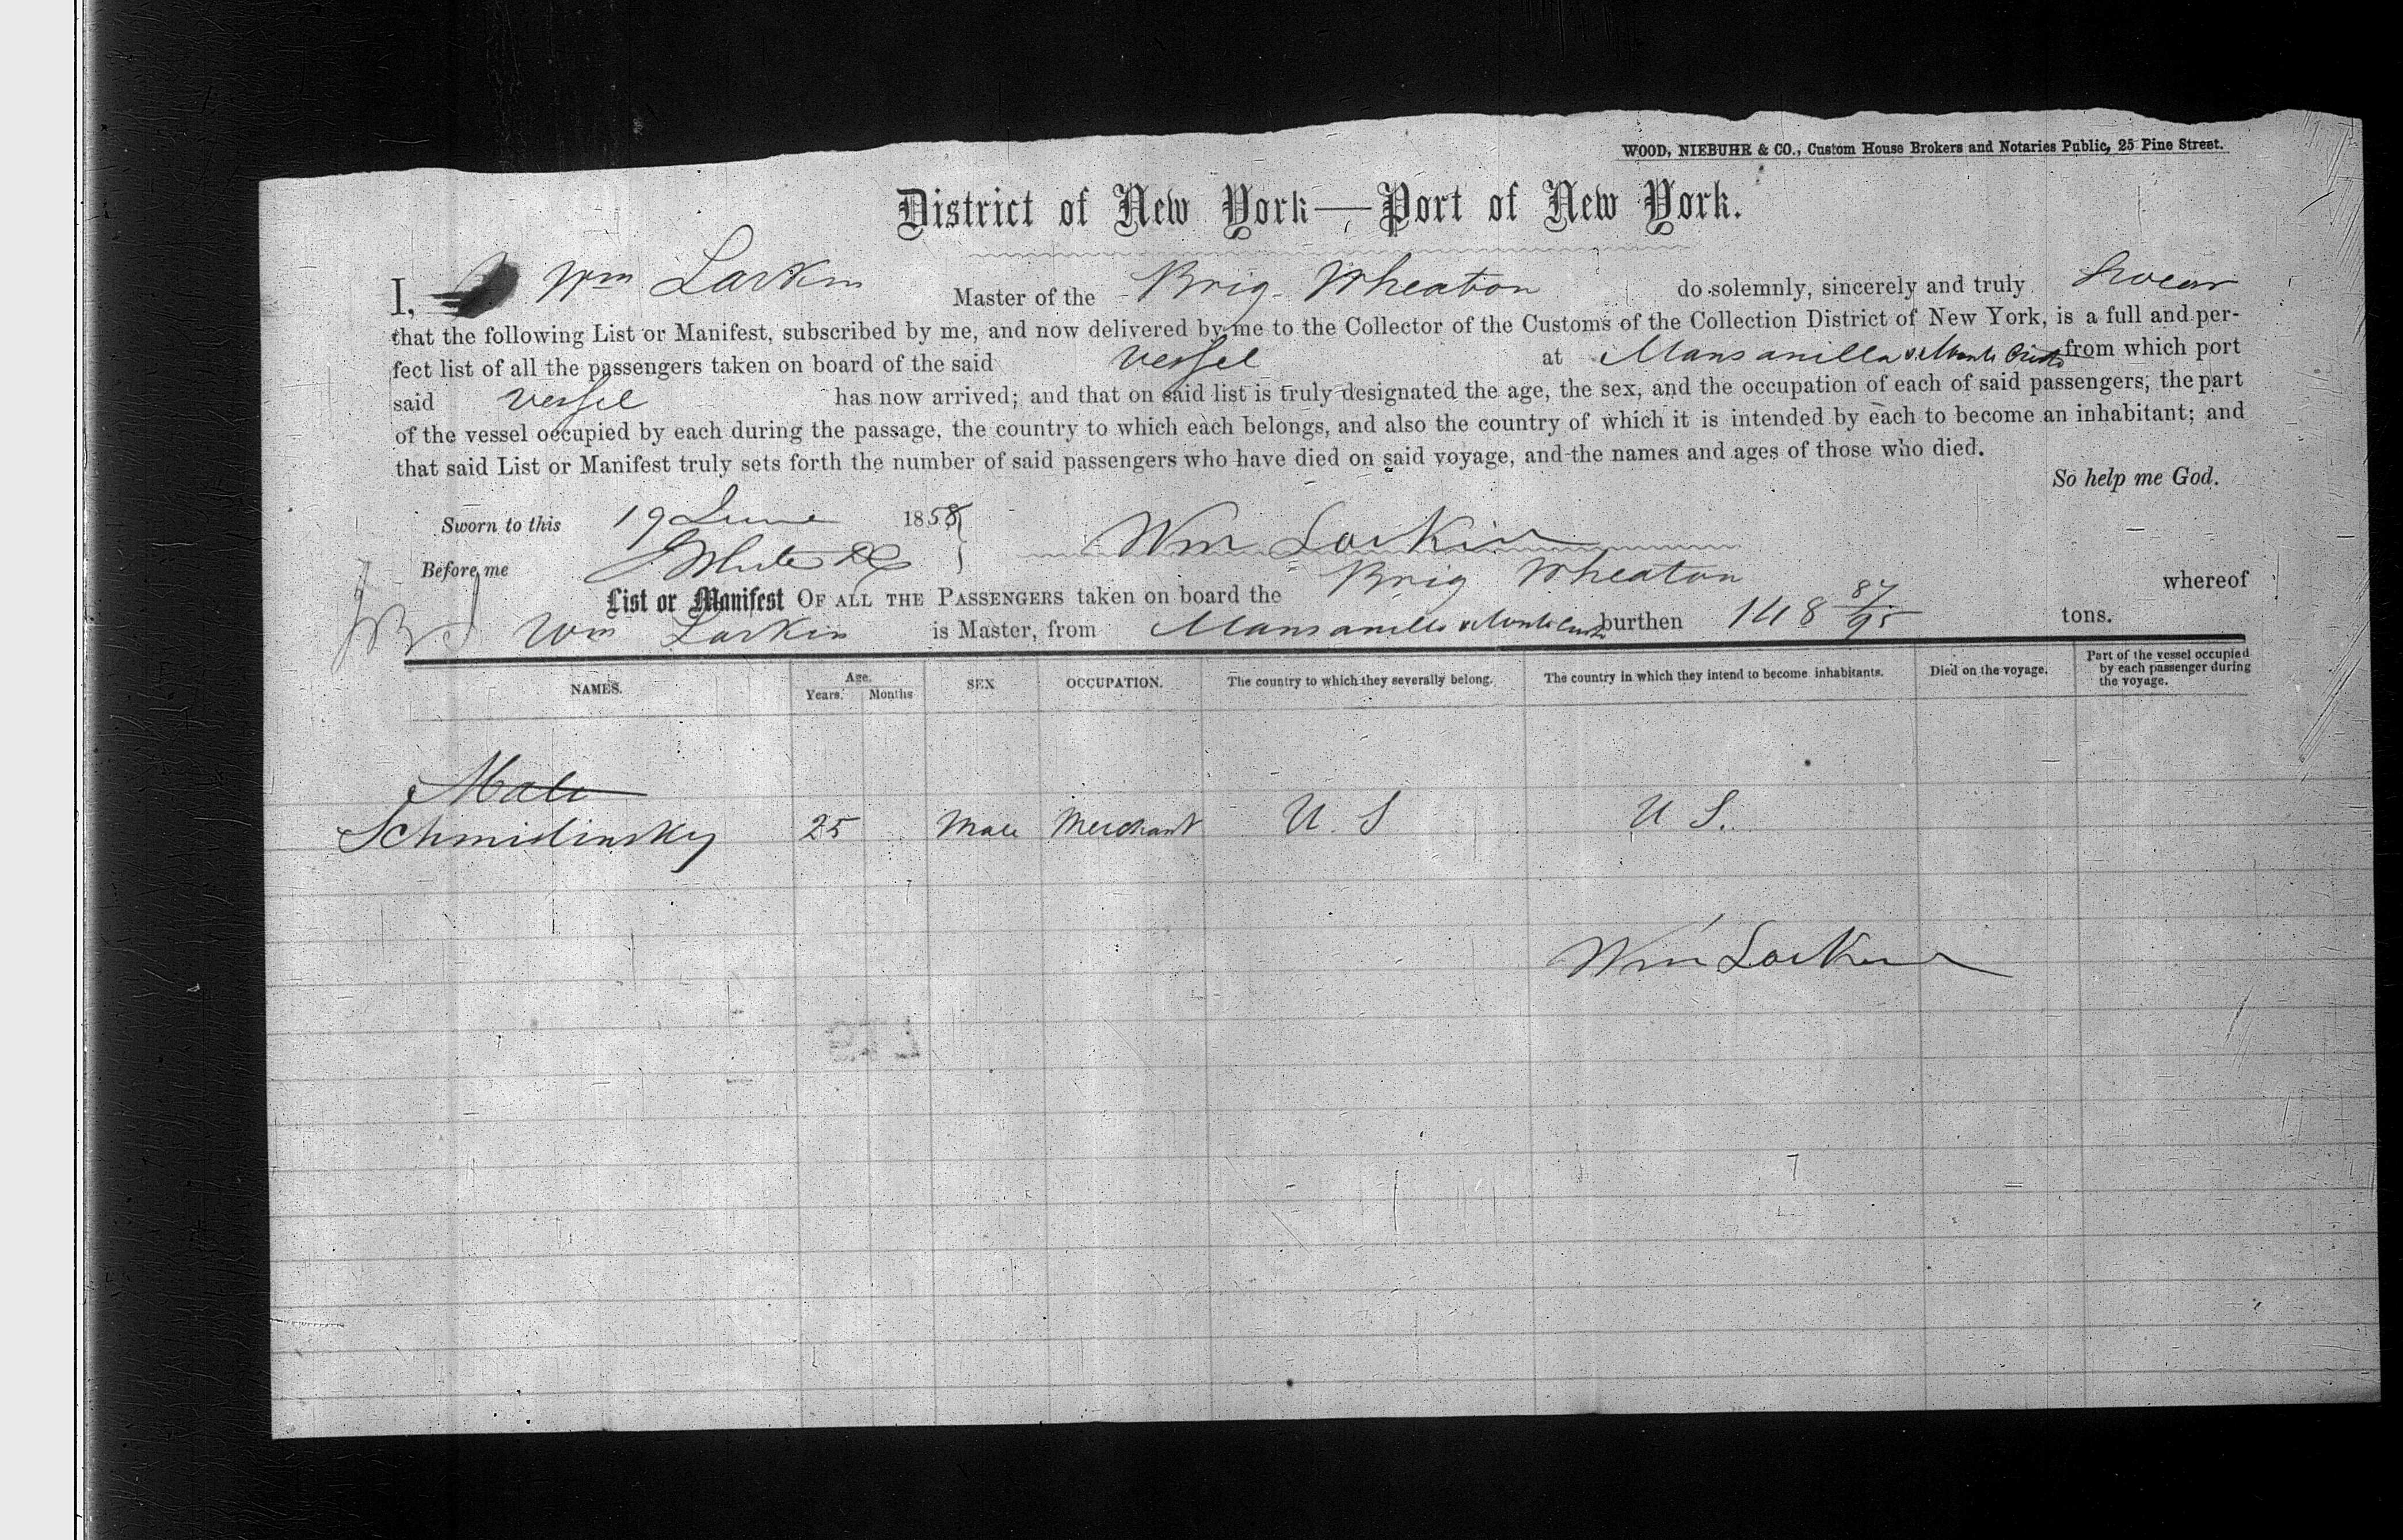 WOOD, NIEBUHR & CO., Custom House Brokers and Notaries Public, 25 Pine Street.
District of New York—Port of New York.
I, Wm Larkin Master of the Brig Wheaton do solemnly, sincerely and truly Swear
that the following List or Manifest, subscribed by me, and now delivered by me to the Collector of the Customs of the Collection District of New York, is a full and per-
fect list of all the passengers taken on board of the said Vessel at Mansanilla & Monte Cristo from which port
said Vessel has now arrived; and that on said list is truly designated the age, the sex, and the occupation of each of said passengers, the part
of the vessel occupied by each during the passage, the country to which each belongs, and also the country of which it is intended by each to become an inhabitant; and
that said List or Manifest truly sets forth the number of said passengers who have died on said voyage, and the names and ages of those who died.
So help me God.
Sworn to this 19 June 1858
Wm Larkin
Before me
List or Manifest OF ALL THE PASSENGERS taken on board the Brig Wheaton whereof
Wm Larkin is Master, from Mansanilla & Monte Cristo burthen 148 87/95 tons.
NAMES. Age. Years. Months SEX OCCUPATION. The country to which they severally belong. The country in which they intend to become inhabitants. Died on the voyage. Part of the vessel occupied by each passenger during the voyage.
Male
Schmidlinsky 25 Male Merchant U. S U S.
Wm Larkin